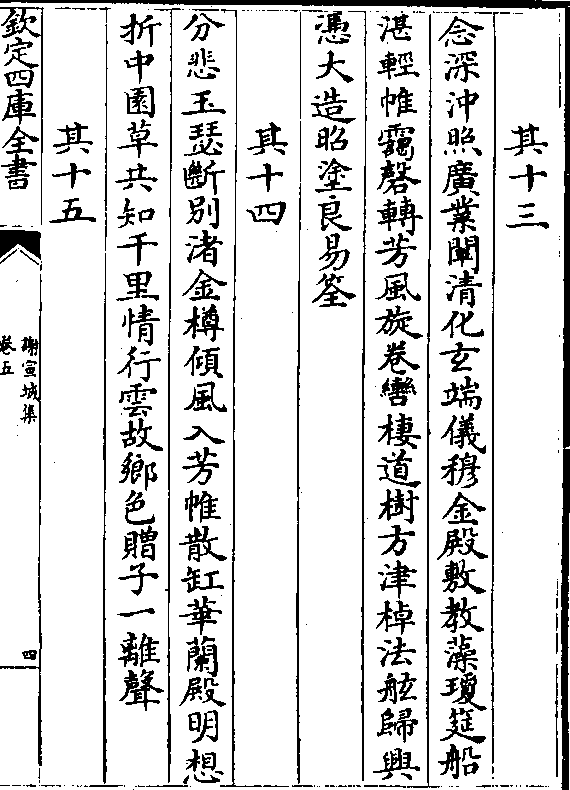 其十三
念深沖照廣業闡清化玄端儀穆金殿敷教藻瓊筵船
湛輕帷靄磬轉芳風旋卷巒棲道樹方津棹法舷歸興
憑大造昭塗良易筌
其十四
分悲玉瑟斷别渚金樽傾風入芳帷散缸華蘭殿明想
折中園草共知千里情行雲故鄉色贈子一離聲
其十五
欽定四庫全書
謝宣城集
卷五
四